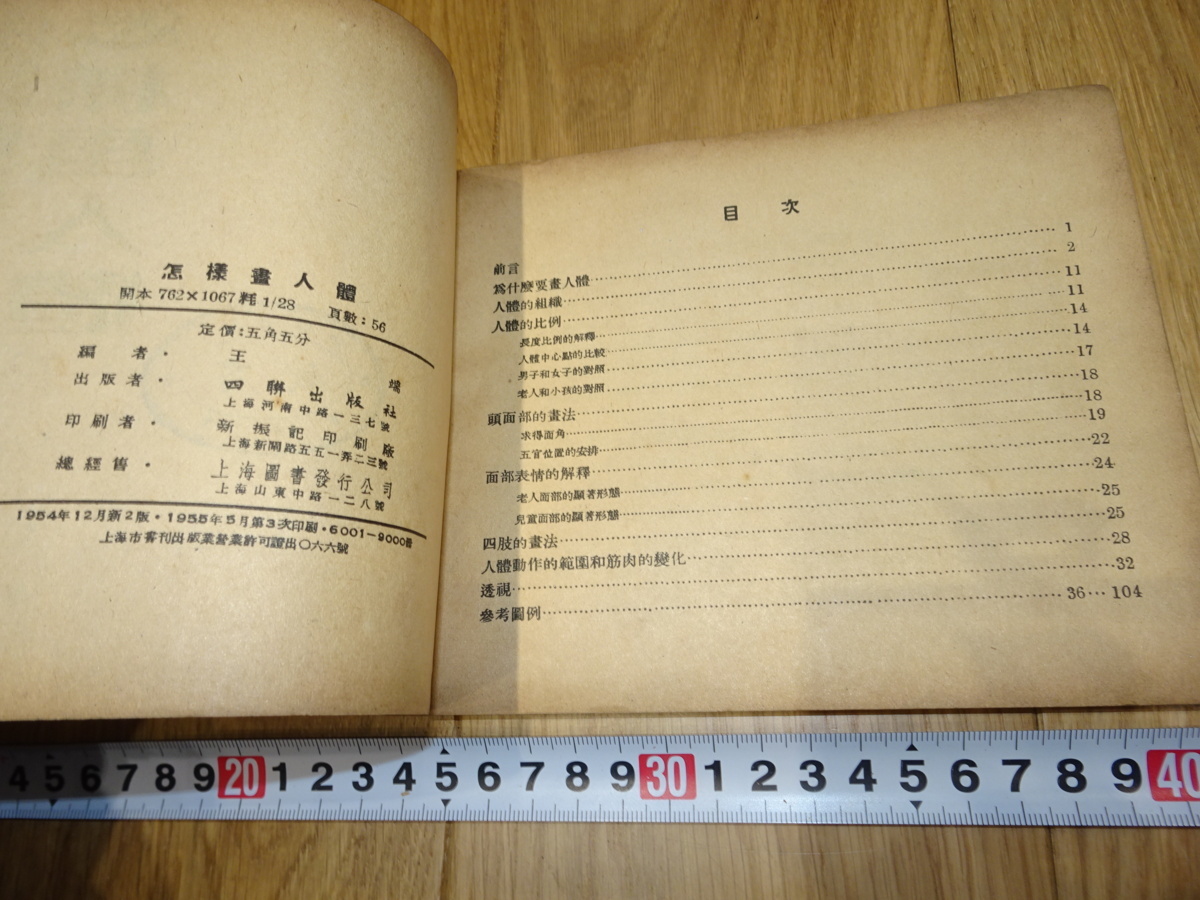 怎樣畫人體
開本 762×1067 粍 1/28 頁數:56
定價:五角五分
編者· 王
出版者· 四聯出版社
上海河南中路一三七號
印刷者· 新振記印刷廠
上海新閘路五五一弄二三號
總經售· 上海圖書發行公司
上海山東中路一二八號
1954年12月新2版·1955年5月第3次印刷·6001-9000冊
上海市書刊出版業營業許可證出〇六六號
目 次
前言
爲什麼要畫人體 1
人體的組織 2
人體的比例 11
長度比例的解釋 11
人體中心點的比較 14
男子和女子的對照 14
老人和小孩的對照 17
頭面部的畫法 18
求得面角 18
五官位置的安排 19
面部表情的解釋 22
老人面部的顯著形態 24
兒童面部的顯著形態 25
四肢的畫法 25
人體動作的範圍和筋肉的變化 28
透視 32
參考圖例 36…104
4 5 6 7 8 9 20 1 2 3 4 5 6 7 8 9 30 1 2 3 4 5 6 7 8 9 40